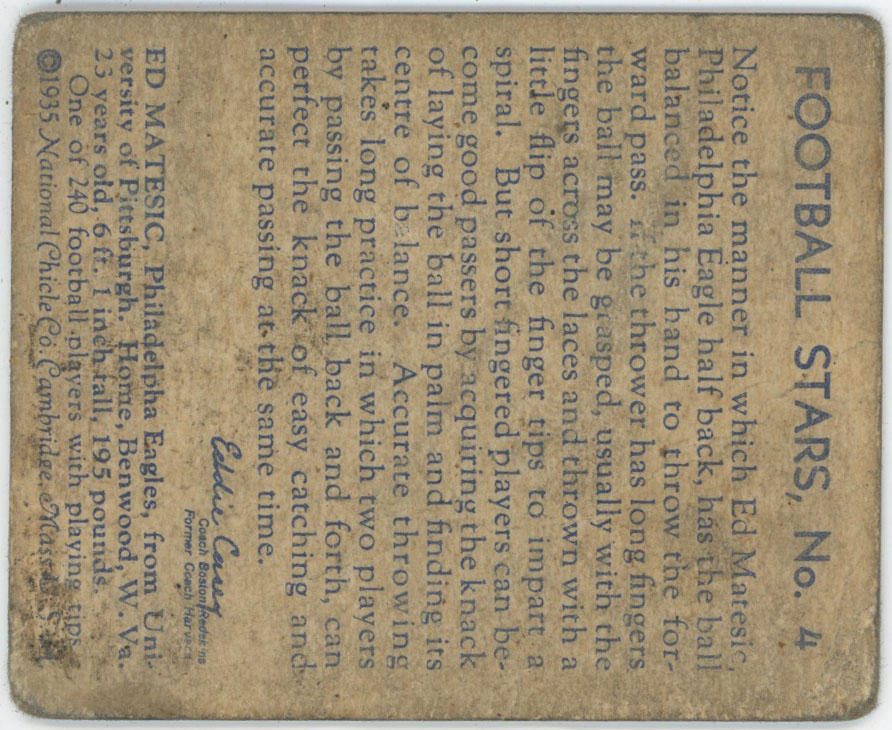 FOOTBALL STARS, No. 4
Notice the manner in which Ed Matesic,
Philadelphia Eagle half back, has the ball
balanced in his hand to throw the for-
ward pass. If the thrower has long fingers
the ball may be grasped, usually with the
fingers across the laces and thrown with a
little flip of the finger tips to impart a
spiral. But short fingered players can be-
come good passers by acquiring the knack
of laying the ball in palm and finding its
centre of balance. Accurate throwing
takes long practice in which two players
by passing the ball back and forth, can
perfect the knack of easy catching and
accurate passing at the same time.
Eddie Casey
Coach Boston Redskins
Former Coach Harvard
ED MATESIC, Philadelphia Eagles, from Uni-
versity of Pittsburgh. Home, Benwood, W. Va.
23 years old, 6 ft. 1 inch tall, 195 pounds.
One of 240 football players with playing tips
©1935 National Chicle Co. Cambridge, Mass. U.S.A.